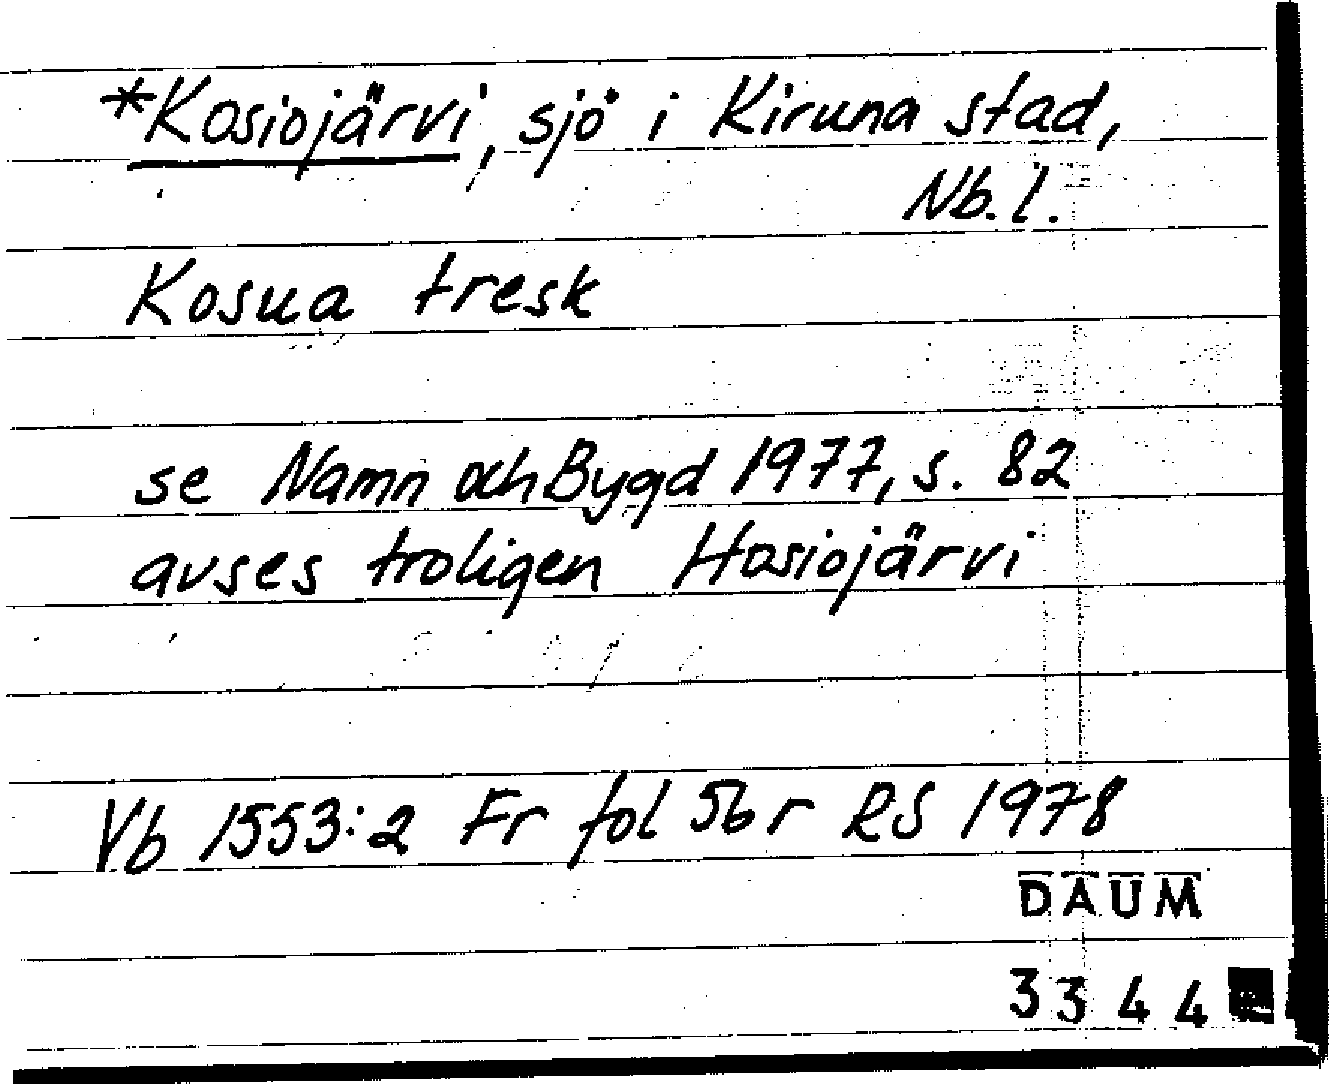 *Kosiojärvi, sjö i Kiruna stad,
Nb.l.
Kosua tresk
se Namn och Bygd 1977, s. 82
avses troligen Hosiojärvi
Vb 1553:2 Fr fol 56 r RS 1978
DAUM
3344